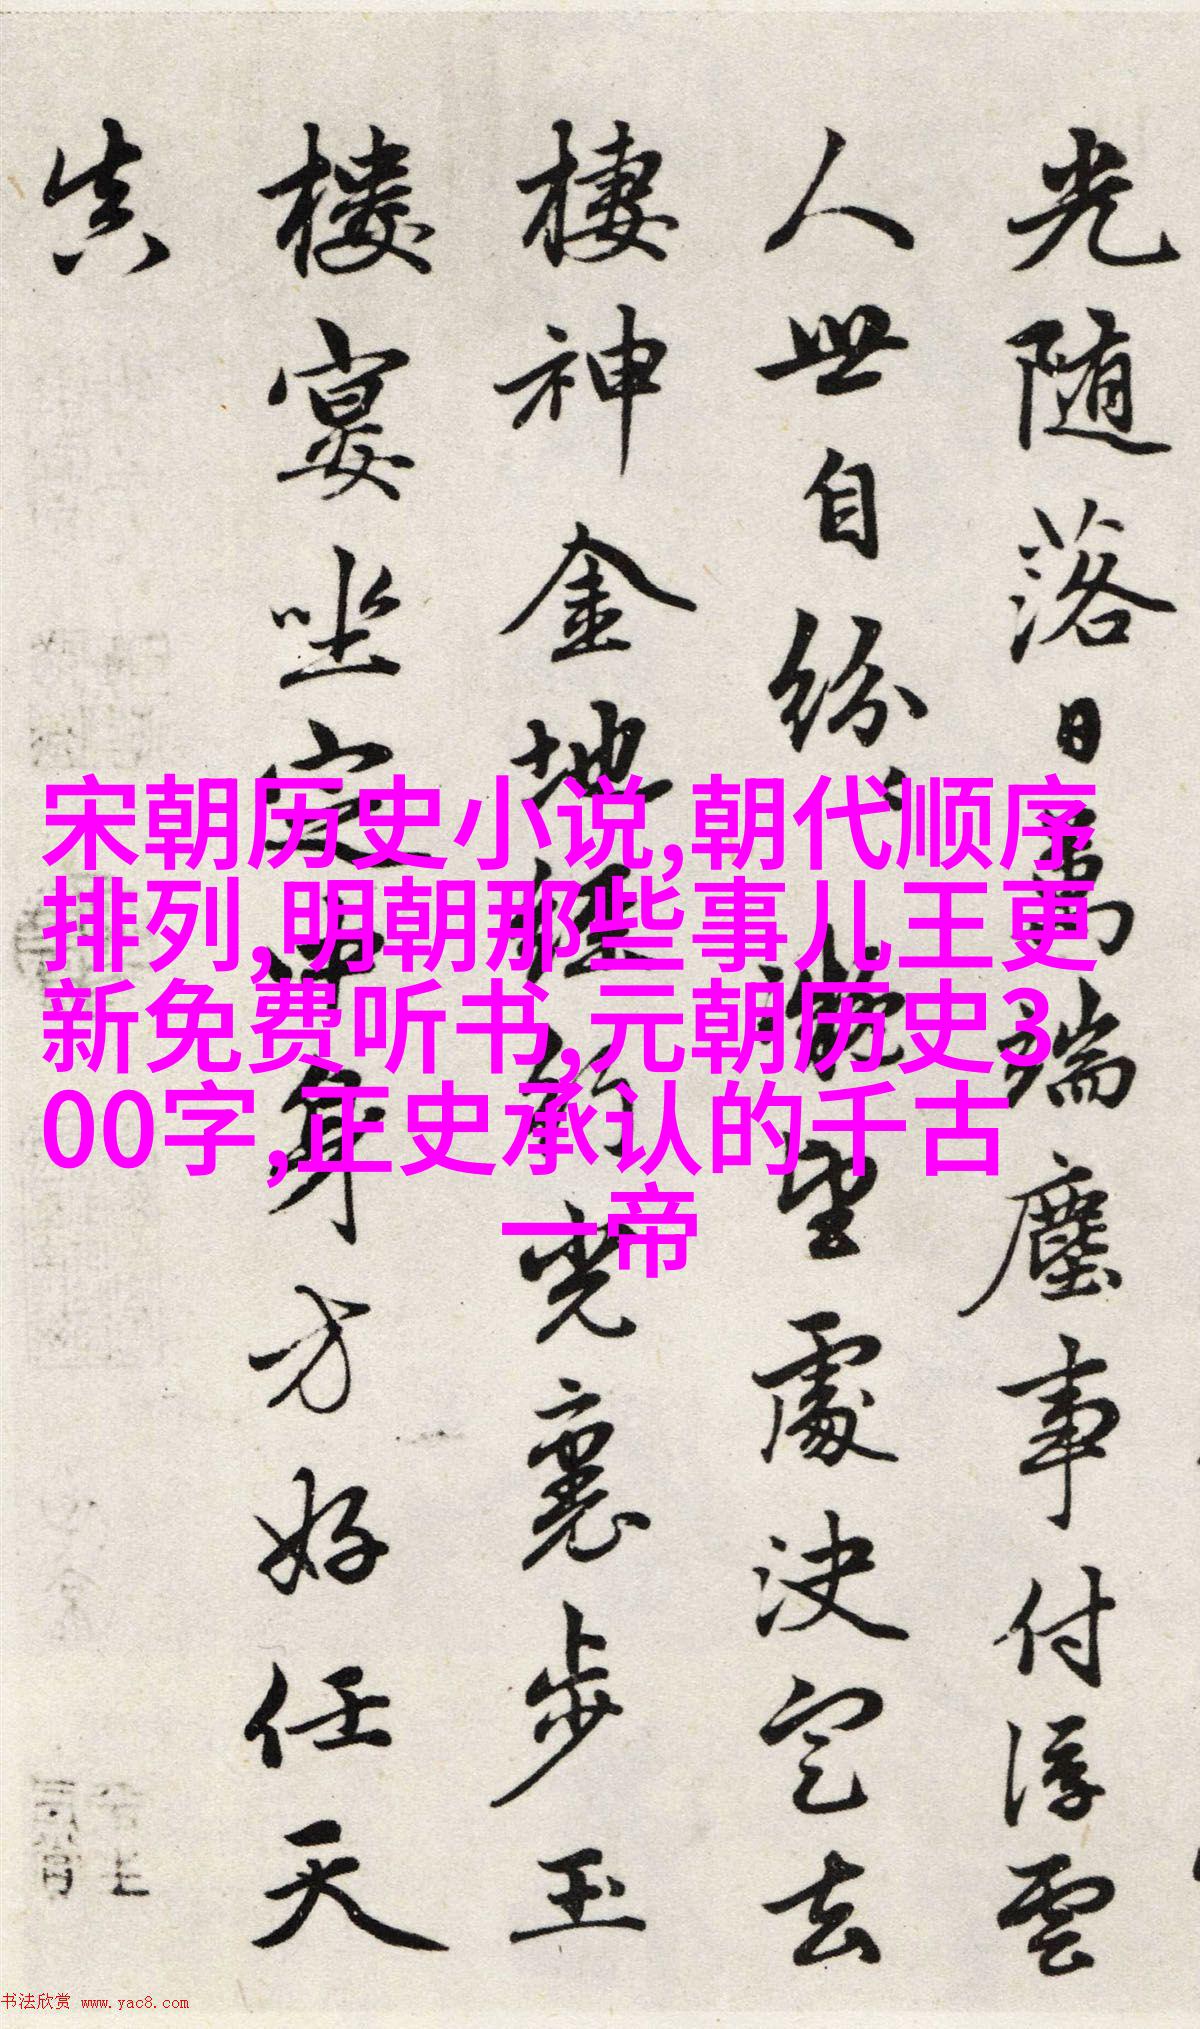 光随落日萬端塵事付浮雲
人世自纷〻望處決定去
棲神金地經行光裏步玉
楼宴坐定中身方好任天
真
宋朝历史小说,朝代顺序
排列,明朝那些事儿王更
新免费听书,元朝历史3
00字,正史承认的千古
一帝
书法欣赏 www.yac8.com